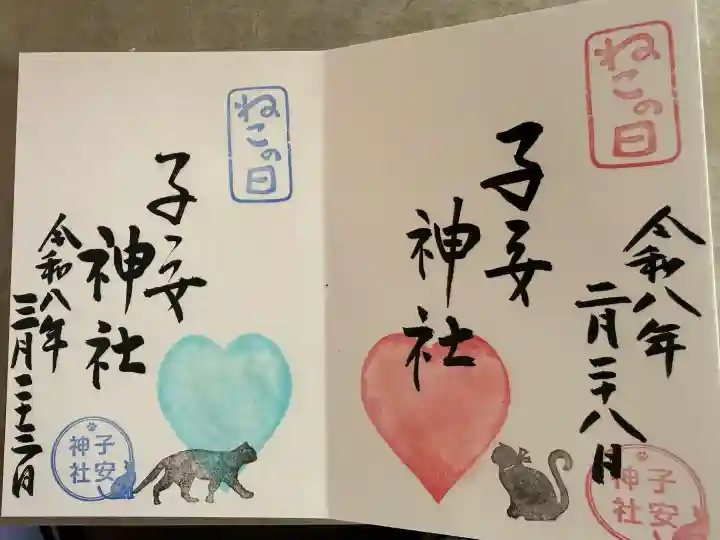 ねこの日
令和八年
二月二十八日
子安
神社
子安
神社
ねこの日
子安
神社
令和八年
三月二十二日
子安
神社